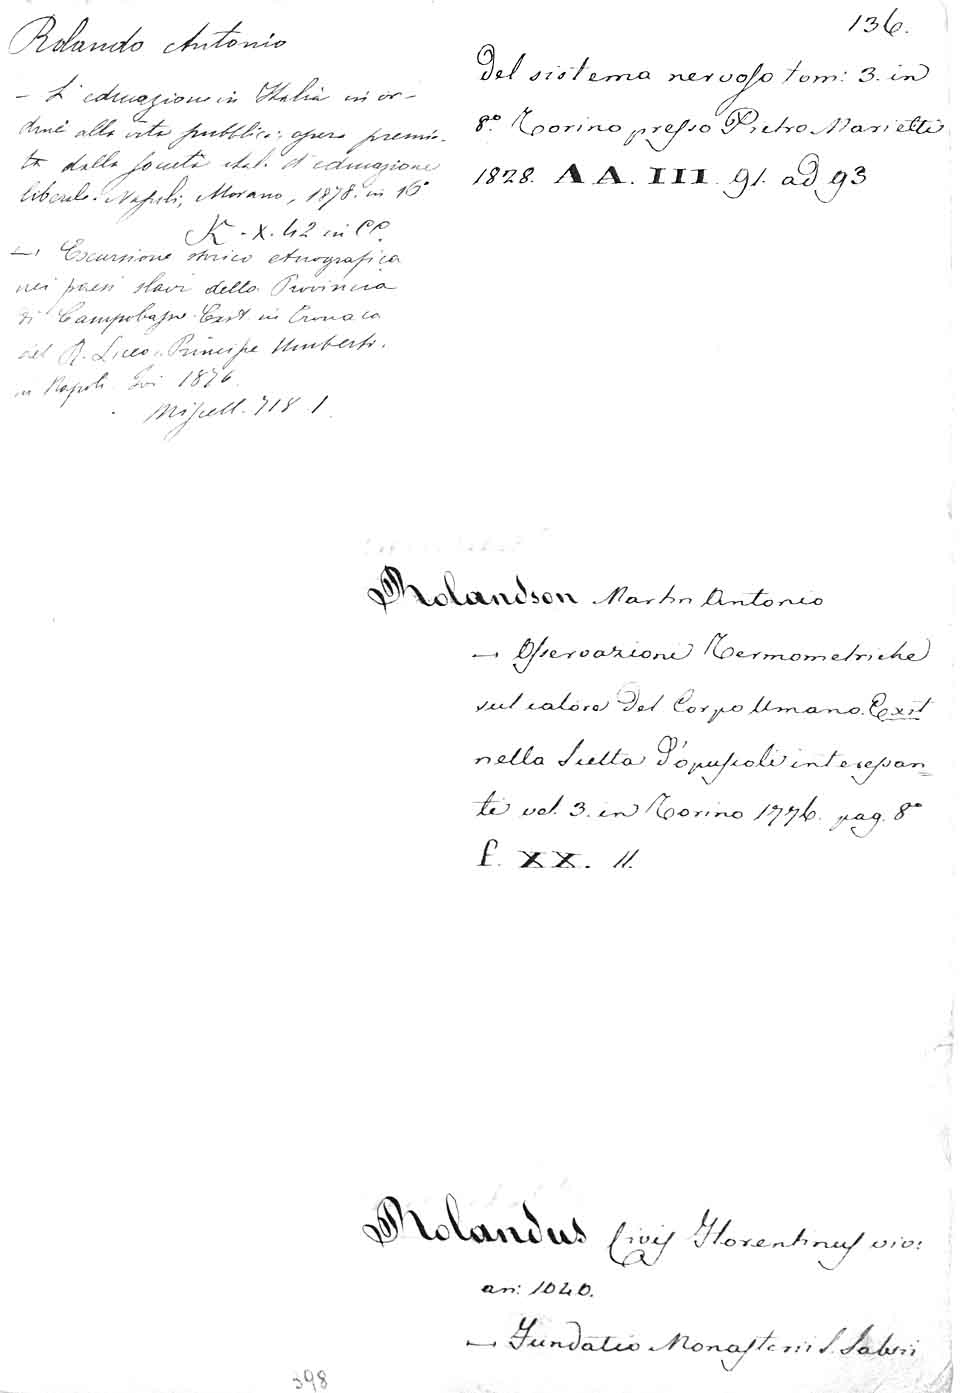 136.
Rolando Antonio
– L'educazione in Italia in or-
dine alla vita pubblica: opera premia-
ta dalla società ital. d'educazione
liberale. Napoli, Morano, 1878. in 16°
K - X. 42 in CC.
—. Escursione storico etnografica
nei paesi slavi della Provincia
di Campobasso Exst in Cronaca
del R. Liceo: Principe Umberto.
in Napoli. Ivi 1876.
Miscell. 718. 1.
del sistema nervoso tom: 3. in
8° Torino presso Pietro Marietti
1828. AA. III. 91. ad 93
Rolandson Martin Antonio
— Osservazioni Termometriche
sul calore del Corpo Umano. Exst
nella Scelta d'opuscoli interessan=
ti vol. 3. in Torino 1776. pag. 8°
f. XX. 11.
Rolandus Civis Florentinus viv:
an: 1040.
— Fundatio Monasterii S.
398